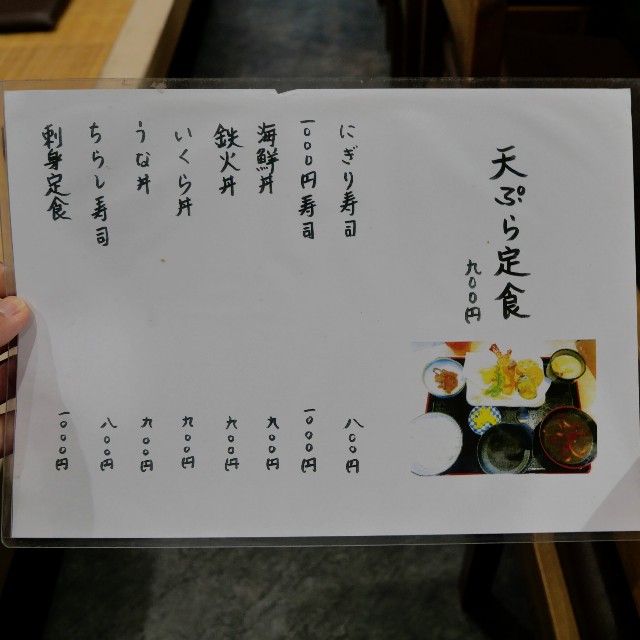 天ぷら定食
九〇〇円
にぎり寿司 八〇〇円
一〇〇〇円寿司 一〇〇〇円
海鮮丼 九〇〇円
鉄火丼 九〇〇円
いくら丼 九〇〇円
うな丼 九〇〇円
ちらし寿司 八〇〇円
刺身定食 一〇〇〇円